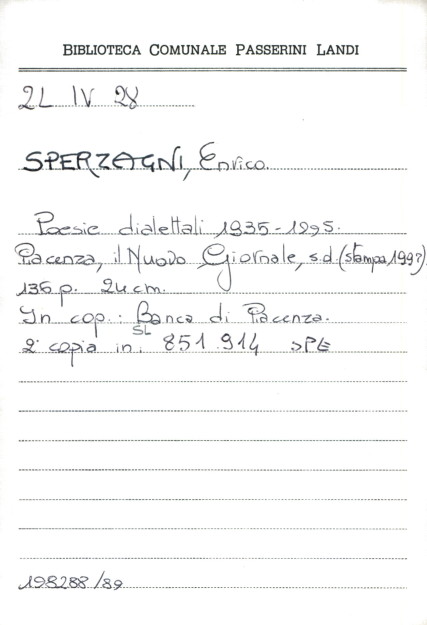 BIBLIOTECA COMUNALE PASSERINI LANDI
2L IV 28
SPERZAGNI, Enrico.
Poesie dialettali 1935-1995.
Piacenza, il Nuovo Giornale, s.d. (stampa 199?)
136 p. 24 cm.
In cop.: Banca di Piacenza.
2ª copia in: SL 851.914 SPE
198288/89